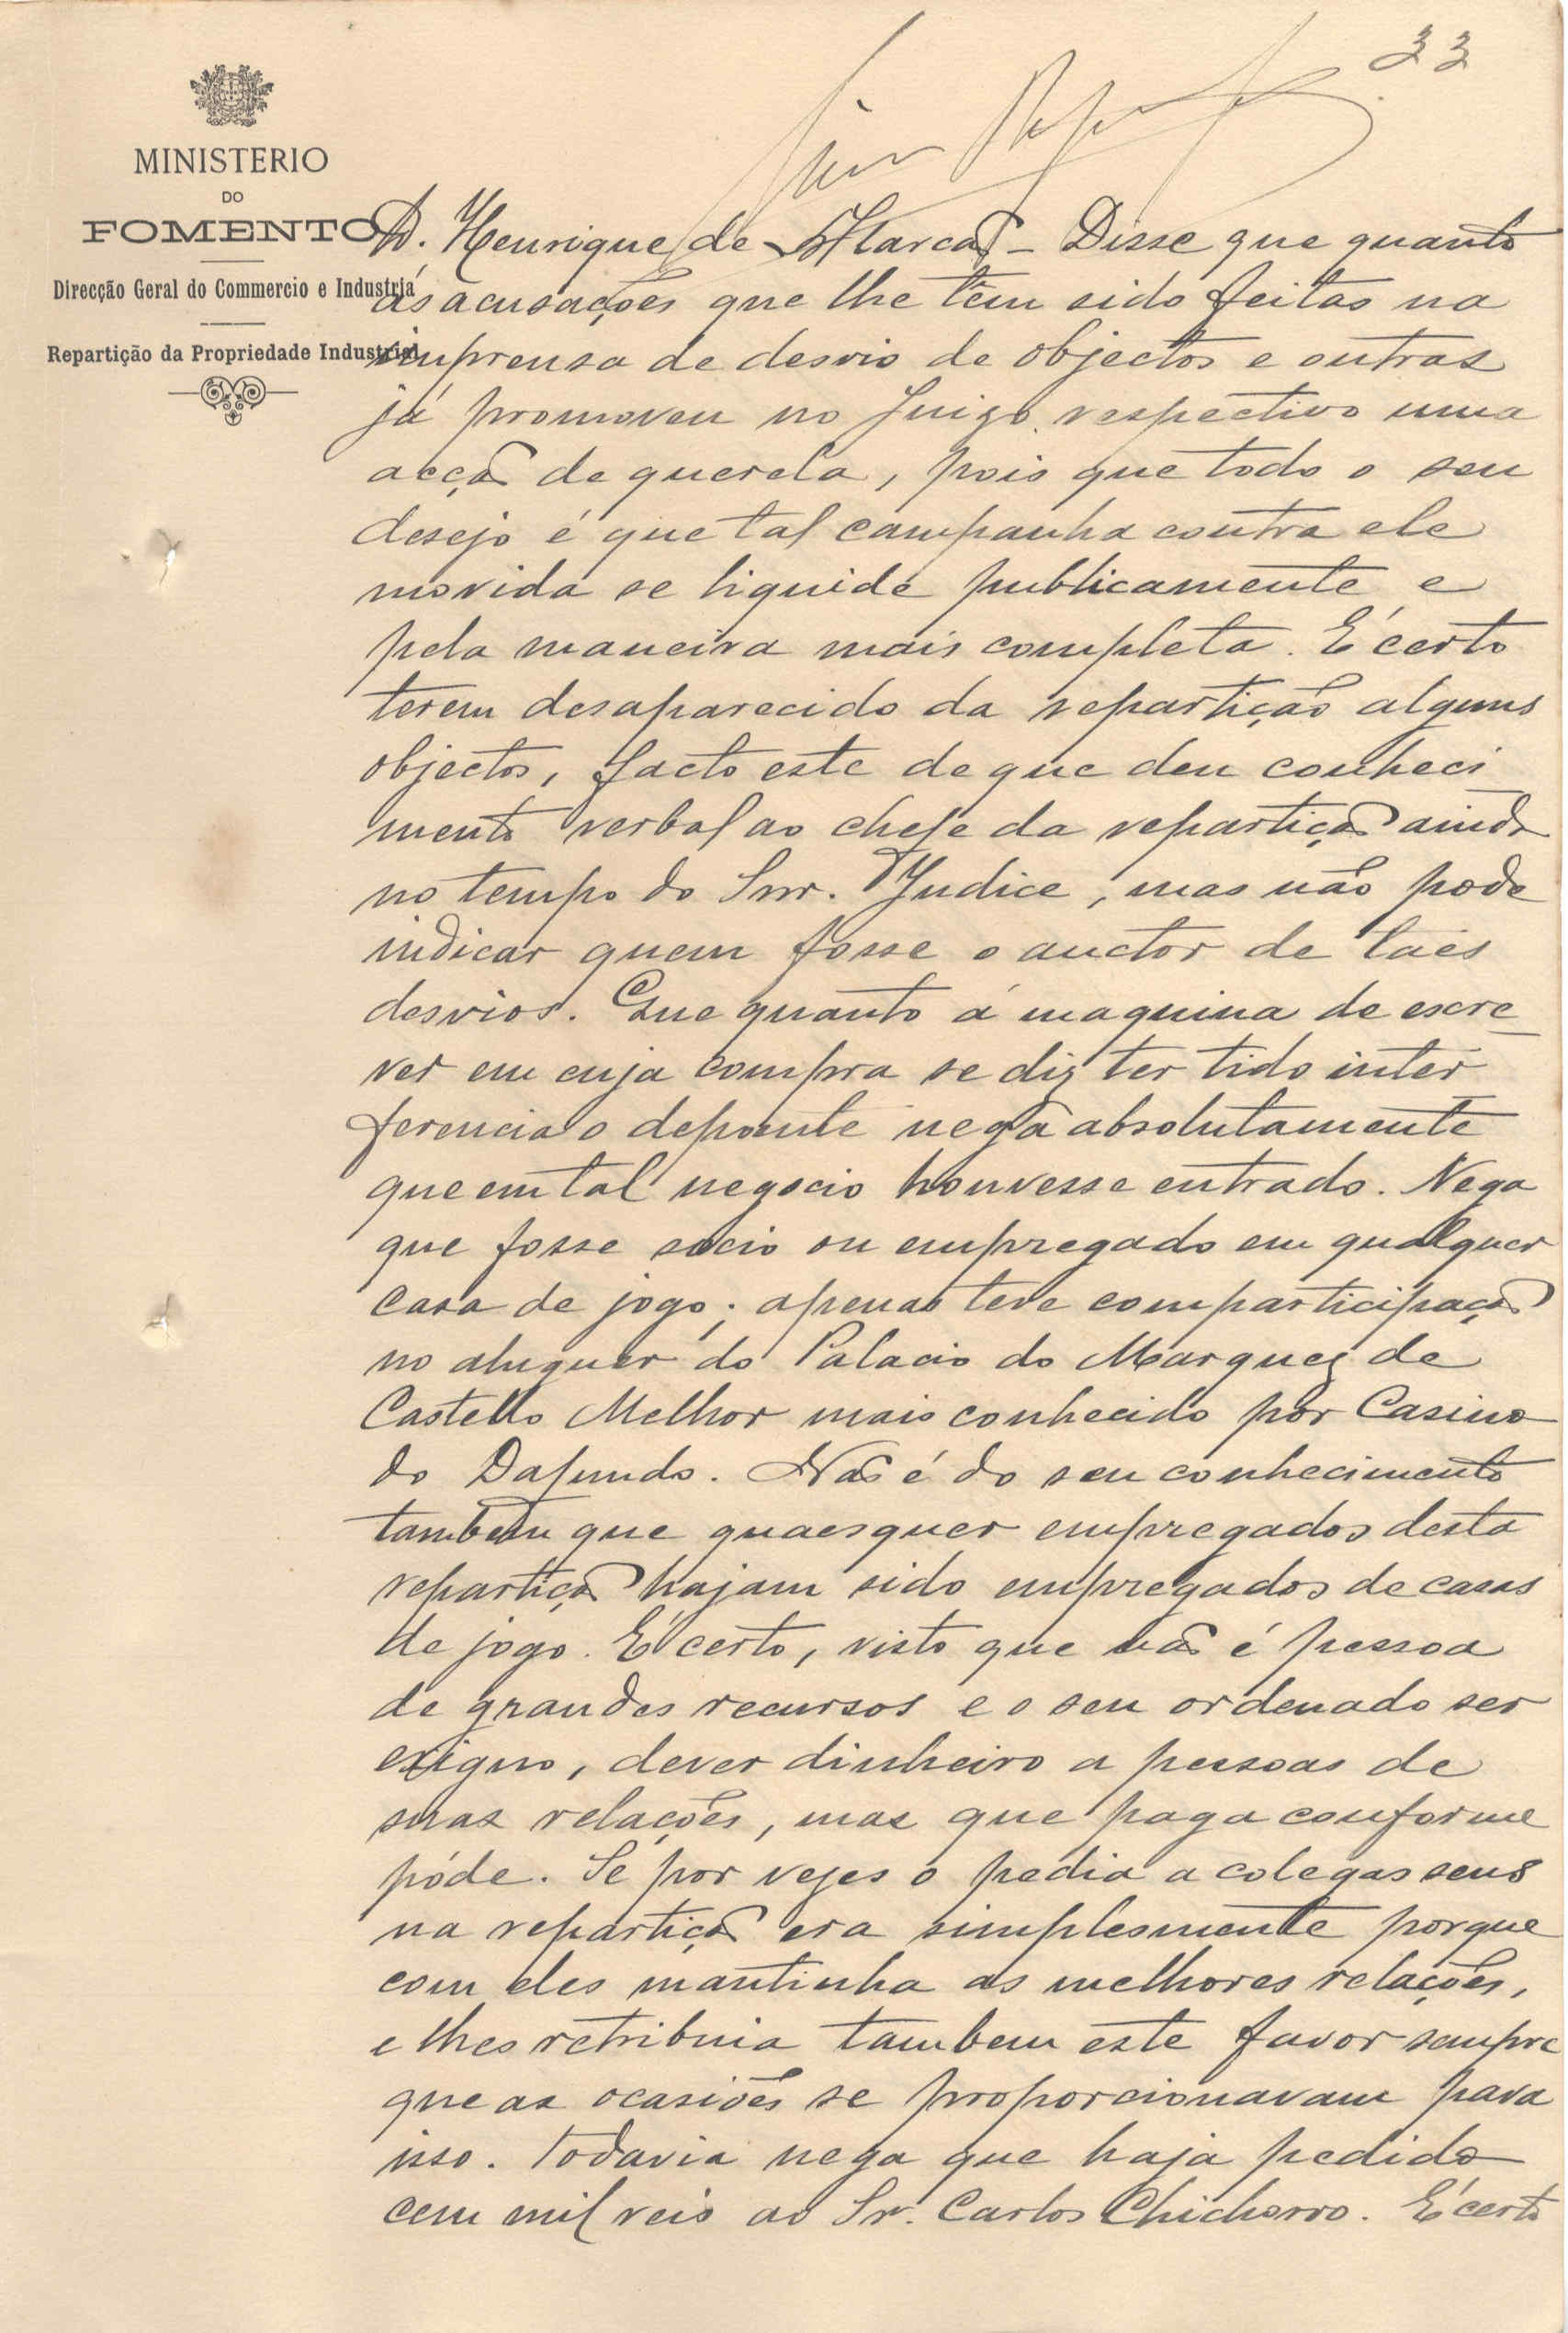 33
MINISTERIO
DO
FOMENTO
Direcção Geral do Commercio e Industria
Repartição da Propriedade Industrial
D. Henrique de Alarcaõ - Disse que quanto
ás acusações que lhe têm sido feitas na
imprensa de desvio de objectos e outras
já promoveu no Juizo respectivo uma
acçaõ de querela, pois que todo o seu
desejo é que tal campanha contra ele
movida se liquide publicamente e
pela maneira mais completa. É certo
terem desaparecido da repartição alguns
objectos, facto este de que deu conheci
mento verbal ao chefe da repartiçaõ ainda
no tempo do Snr. Judice, mas não pode
indicar quem fosse o auctor de taes
desvios. Que quanto á maquina de escre-
ver em cuja compra se diz ter tido inter
ferencia o depoente nega absolutamente
que em tal negocio houvesse entrado. Nega
que fosse socio ou empregado em qualquer
casa de jogo; apenas teve comparticipaçaõ
no aluguer do Palacio do Marquez de
Castello Melhor mais conhecido por Casino
do Dafundo. Naõ é do seu conhecimento
tambem que quaesquer empregados desta
repartiçaõ hajam sido empregados de casas
de jogo. É certo, visto que naõ é pessoa
de grandes recursos e o seu ordenado ser
exiguo, dever dinheiro a pessoas de
suas relações, mas que paga conforme
póde. Se por vezes o pedia a colegas seus
na repartiçaõ era simplesmente porque
com eles mantinha as melhores relações,
e lhes retribuia tambem este favor sempre
que as ocasiões se proporcionavam para
isso. Todavia nega que haja pedido
cem mil reis ao Sr. Carlos Chichorro. É certo